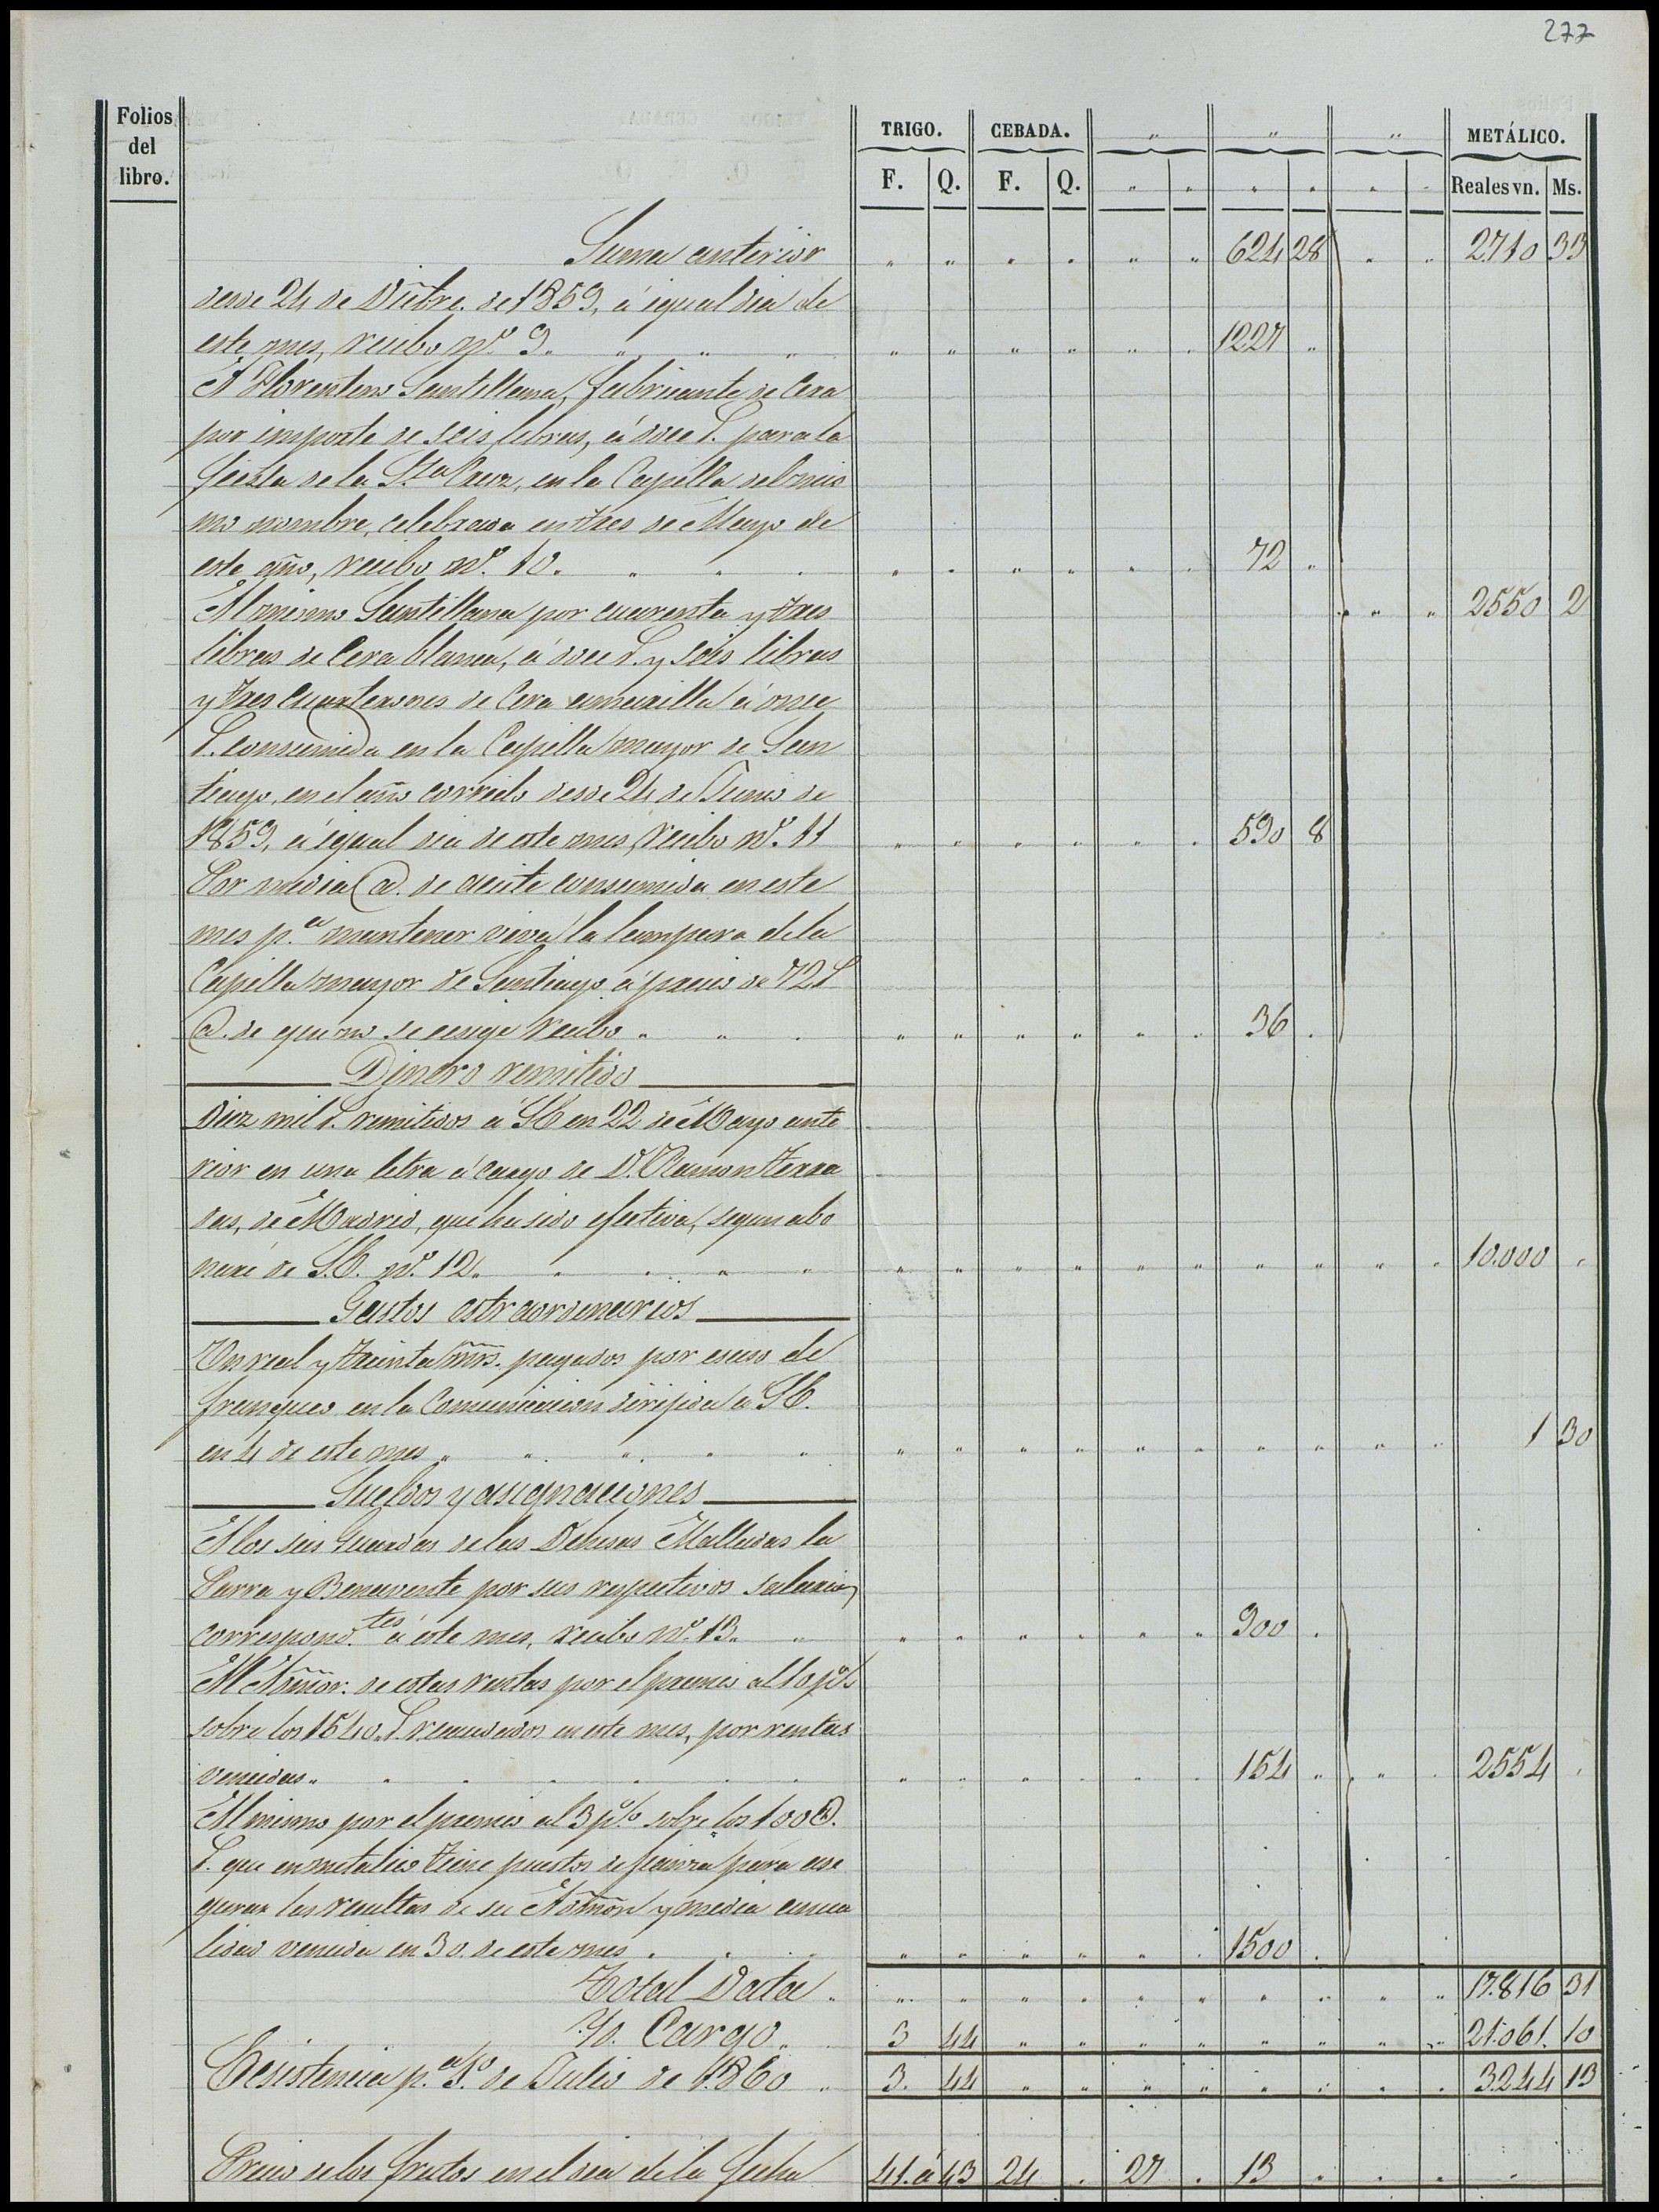 277
Folios del libro.
TRIGO. CEBADA. " " " METÁLICO.
F. Q. F. Q. " " " " " " Reales vn. Ms.
Suma anterior " " " " " " 624 28 " " 2710 33
desde 24 de Dicbre. de 1859, á igual dia de
este mes, recibo nº. 9. " " " " " " " " " 1227 "
A Florentino Santillana, fabricante de Cera
por importe de seis libras, á doce r. para la
fiesta de la Sta Cruz, en la Capilla del mis
mo nombre, celebrada en tres de Mayo de
este año, recibo nº. 10. " " " " " " " " " 72 "
Al mismo Santillana por cuarenta y tres " " " 2550 2
libras de Cera blanca, á doce r. y seis libras
y tres cuarterones de Cera amarilla á once
r. consumida en la Capilla mayor de San
tiago, en el año corrido desde 24 de Junio de
1859, á igual dia de este mes, recibo nº. 11 " " " " " " 590 8
Por media @. de aceite consumida en este
mes p.a mantener viva la lampara de la
Capilla mayor de Santiago á precio de 72 r
@. de que no se exige recibo " " " " " " " " " 36 "
Dinero remitido
Diez mil r. remitidos á SE en 22 de Mayo ante
rior en una letra á cargo de D. Ramon Terra
das, de Madrid, que ha sido efectiva, segun abo
naré de S.E. nº. 12. " " " " " " " " " " " " " " 10.000 "
Gastos estraordinarios
Un real y treinta mrs. pagados por esceso de
franqueo en la Comunicacion dirijida a SE.
en 4 de este mes " " " " " " " " " " " " " " " 1 30
Sueldos y asignaciones
A los seis Guardas de las Dehesas Malladas la
Parra y Benavente por sus respectivos salarios
correspond.tes á este mes, recibo nº. 13. " " " " " " " 900 "
Al Admor. de estas rentas por el premio al 10 p%
sobre los 1540. r. recaudados en este mes, por rentas
vencidas " " " " " " " " " " " " 154 " " " " 2554 "
Al mismo por el premio al 3 p.% sobre los 100@.
r. que en metalico tiene puestos de fianza para ase
gurar las resultas de su Admon y media anua
lidad vencida en 30 de este mes " " " " " " " " " 1500 "
Total Data " " " " " " " " " " " 17.816 31
Yd. Cargo " 3 44 " " " " " " " " 21.061. 10
Ecsistencia p.a 1º. de Julio de 1860 " 3. 44 " " " " " " " " 3244 13
Precio de los frutos en el dia de la fecha 41. á 43 24 " 27 " 13 " " " "